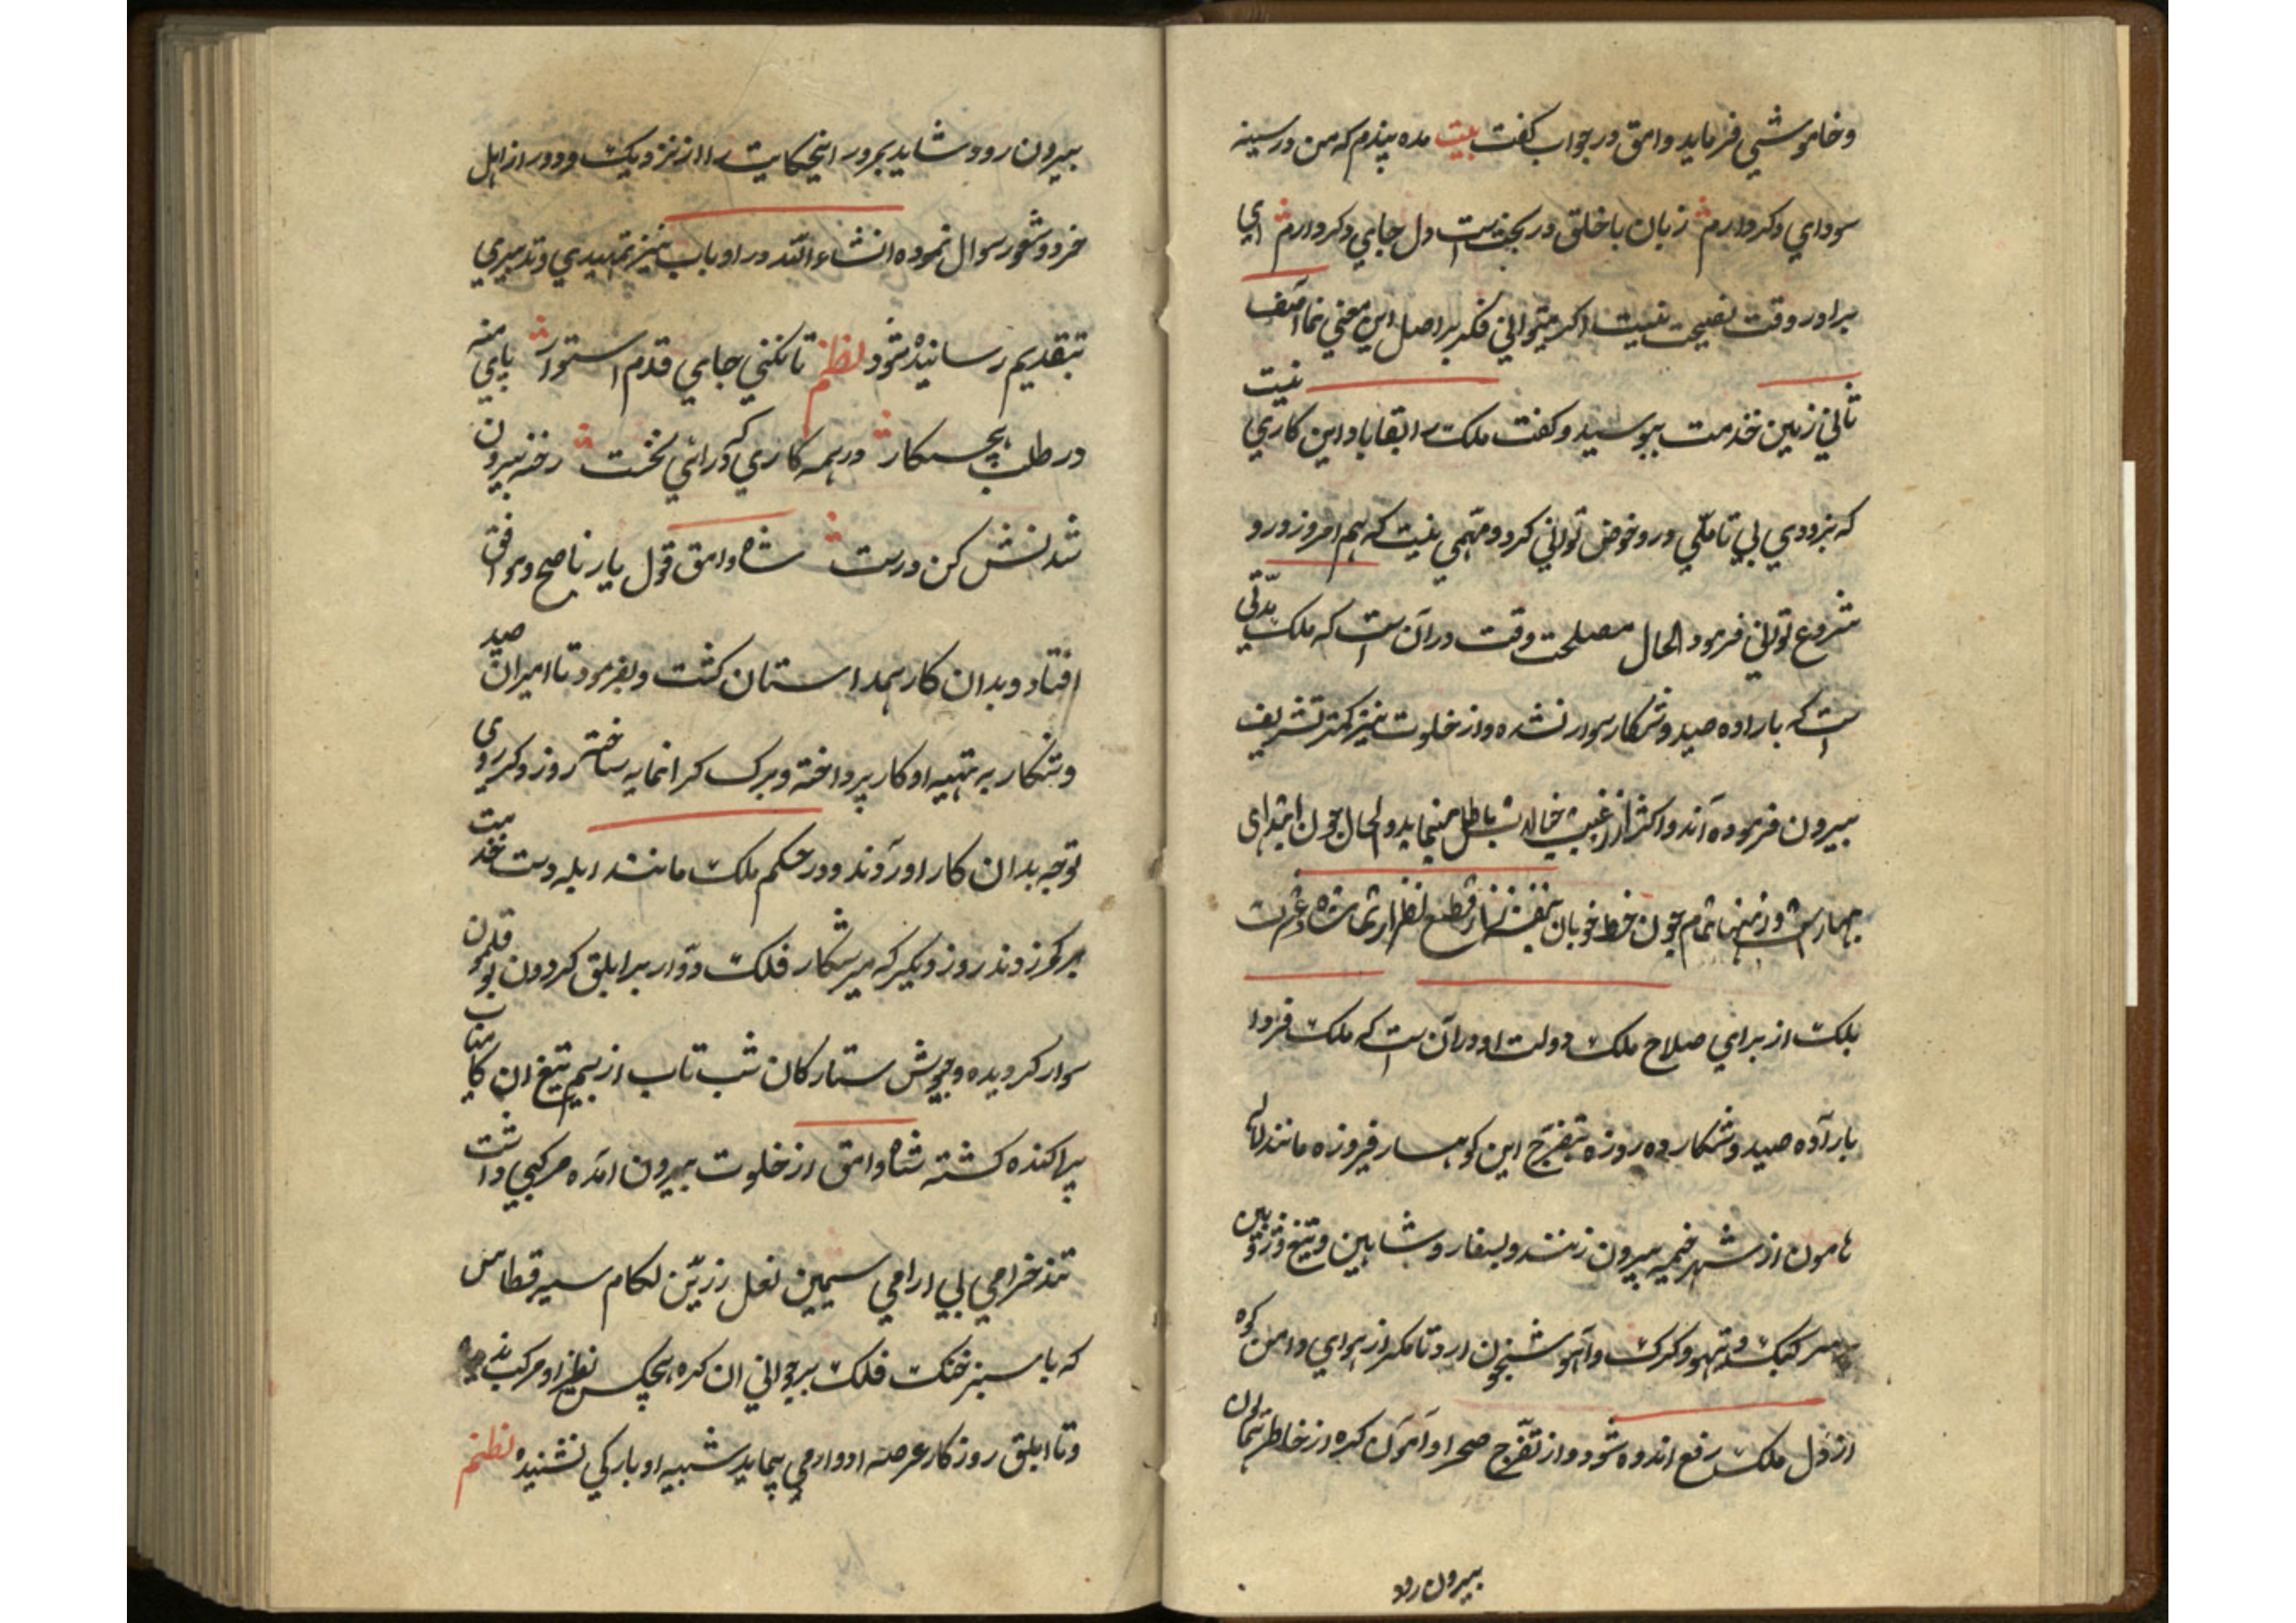 وخاموشی فرماید وامق در جواب کفت بیت مده پندم که من در سینه
سودای دکر دارم زبان با خلق در بحثست دل جای دکر دارم ای
برادر وقت نصیحت نیست اکر میتوانی فکر بر اصل این معنی نما آصف
ثانی زمین خدمت ببوسید وکفت ملک را بقا باد این کاری نیست
که بزودی بی تأملی درو خوض توانی کرد ومهمی نیست که هم امروز درو
شروع توانی فرمود الحال مصلحت وقت در آن است که ملک مدتی
است که باراده صید وشکار سوار نشده واز خلوت نیز کمتر تشریف
بیرون فرموده اند واکثر از
بهارست تمام چون خط خوبان قطع نظر از تماشاه
بلک از برای صلاح ملک دولت او در آن است که ملک فردا
باراده صید وشکار ده روزه بتفرج این کوهسار فیروزه مانند
هامون از شهر خیمه بیرون زنند وبسفار وشاهین وتیغ وژوپین
بر سر کبک وتیهو وکرک وآهو شبخون ارد تا مکر از هوای دامن کوه
از دل ملک رفع اندوه شود واز تفرج صحرا و آن کره از خاطر همایون
بیرون رود
بیرون رود شاید بمرور اینحکایت را از نزدیک ودور از اهل
خرد وشعور سوال نموده انشاء الله در او باب نیز تمهیدی وتدبیری
بتقدیم رسانیده شود نظم تا نکنی جای قدم استوار پای منه
در طلب هیچ کار در همه کاری که درائی نخست رخنه بیرون
شدنش کن درست شاه وامق قول یار ناصح وموافق
افتاد وبدان کار همداستان کشت وبفرمود تا امیران صید
وشکار به تهیه او کار پرداخته وبرک کرانمایه ساختر روز دکر روی
توجه بدان کار اوردند ودر حکم ملک مانند ابله دست خدمت
بر کمر زدند روز دیکر که میر شکار فلک دوار بر ابلق کردون بوقلمون
سوار کردیده وجیوش ستارکان شب تاب از بیم تیغ ان
پراکنده کشته شاه وامق از خلوت بیرون امده مرکبی داشت
تند خرامی بی ارامی سیمین نعل زرین لکام سیر قطاس
که با سبز خنک فلک بر جوانی ان کره هیچکس نظیر او مرکب
وتا ابلق روزکار عرصه ادوار می پیماید شبیه او بارکی نشنیده نظم